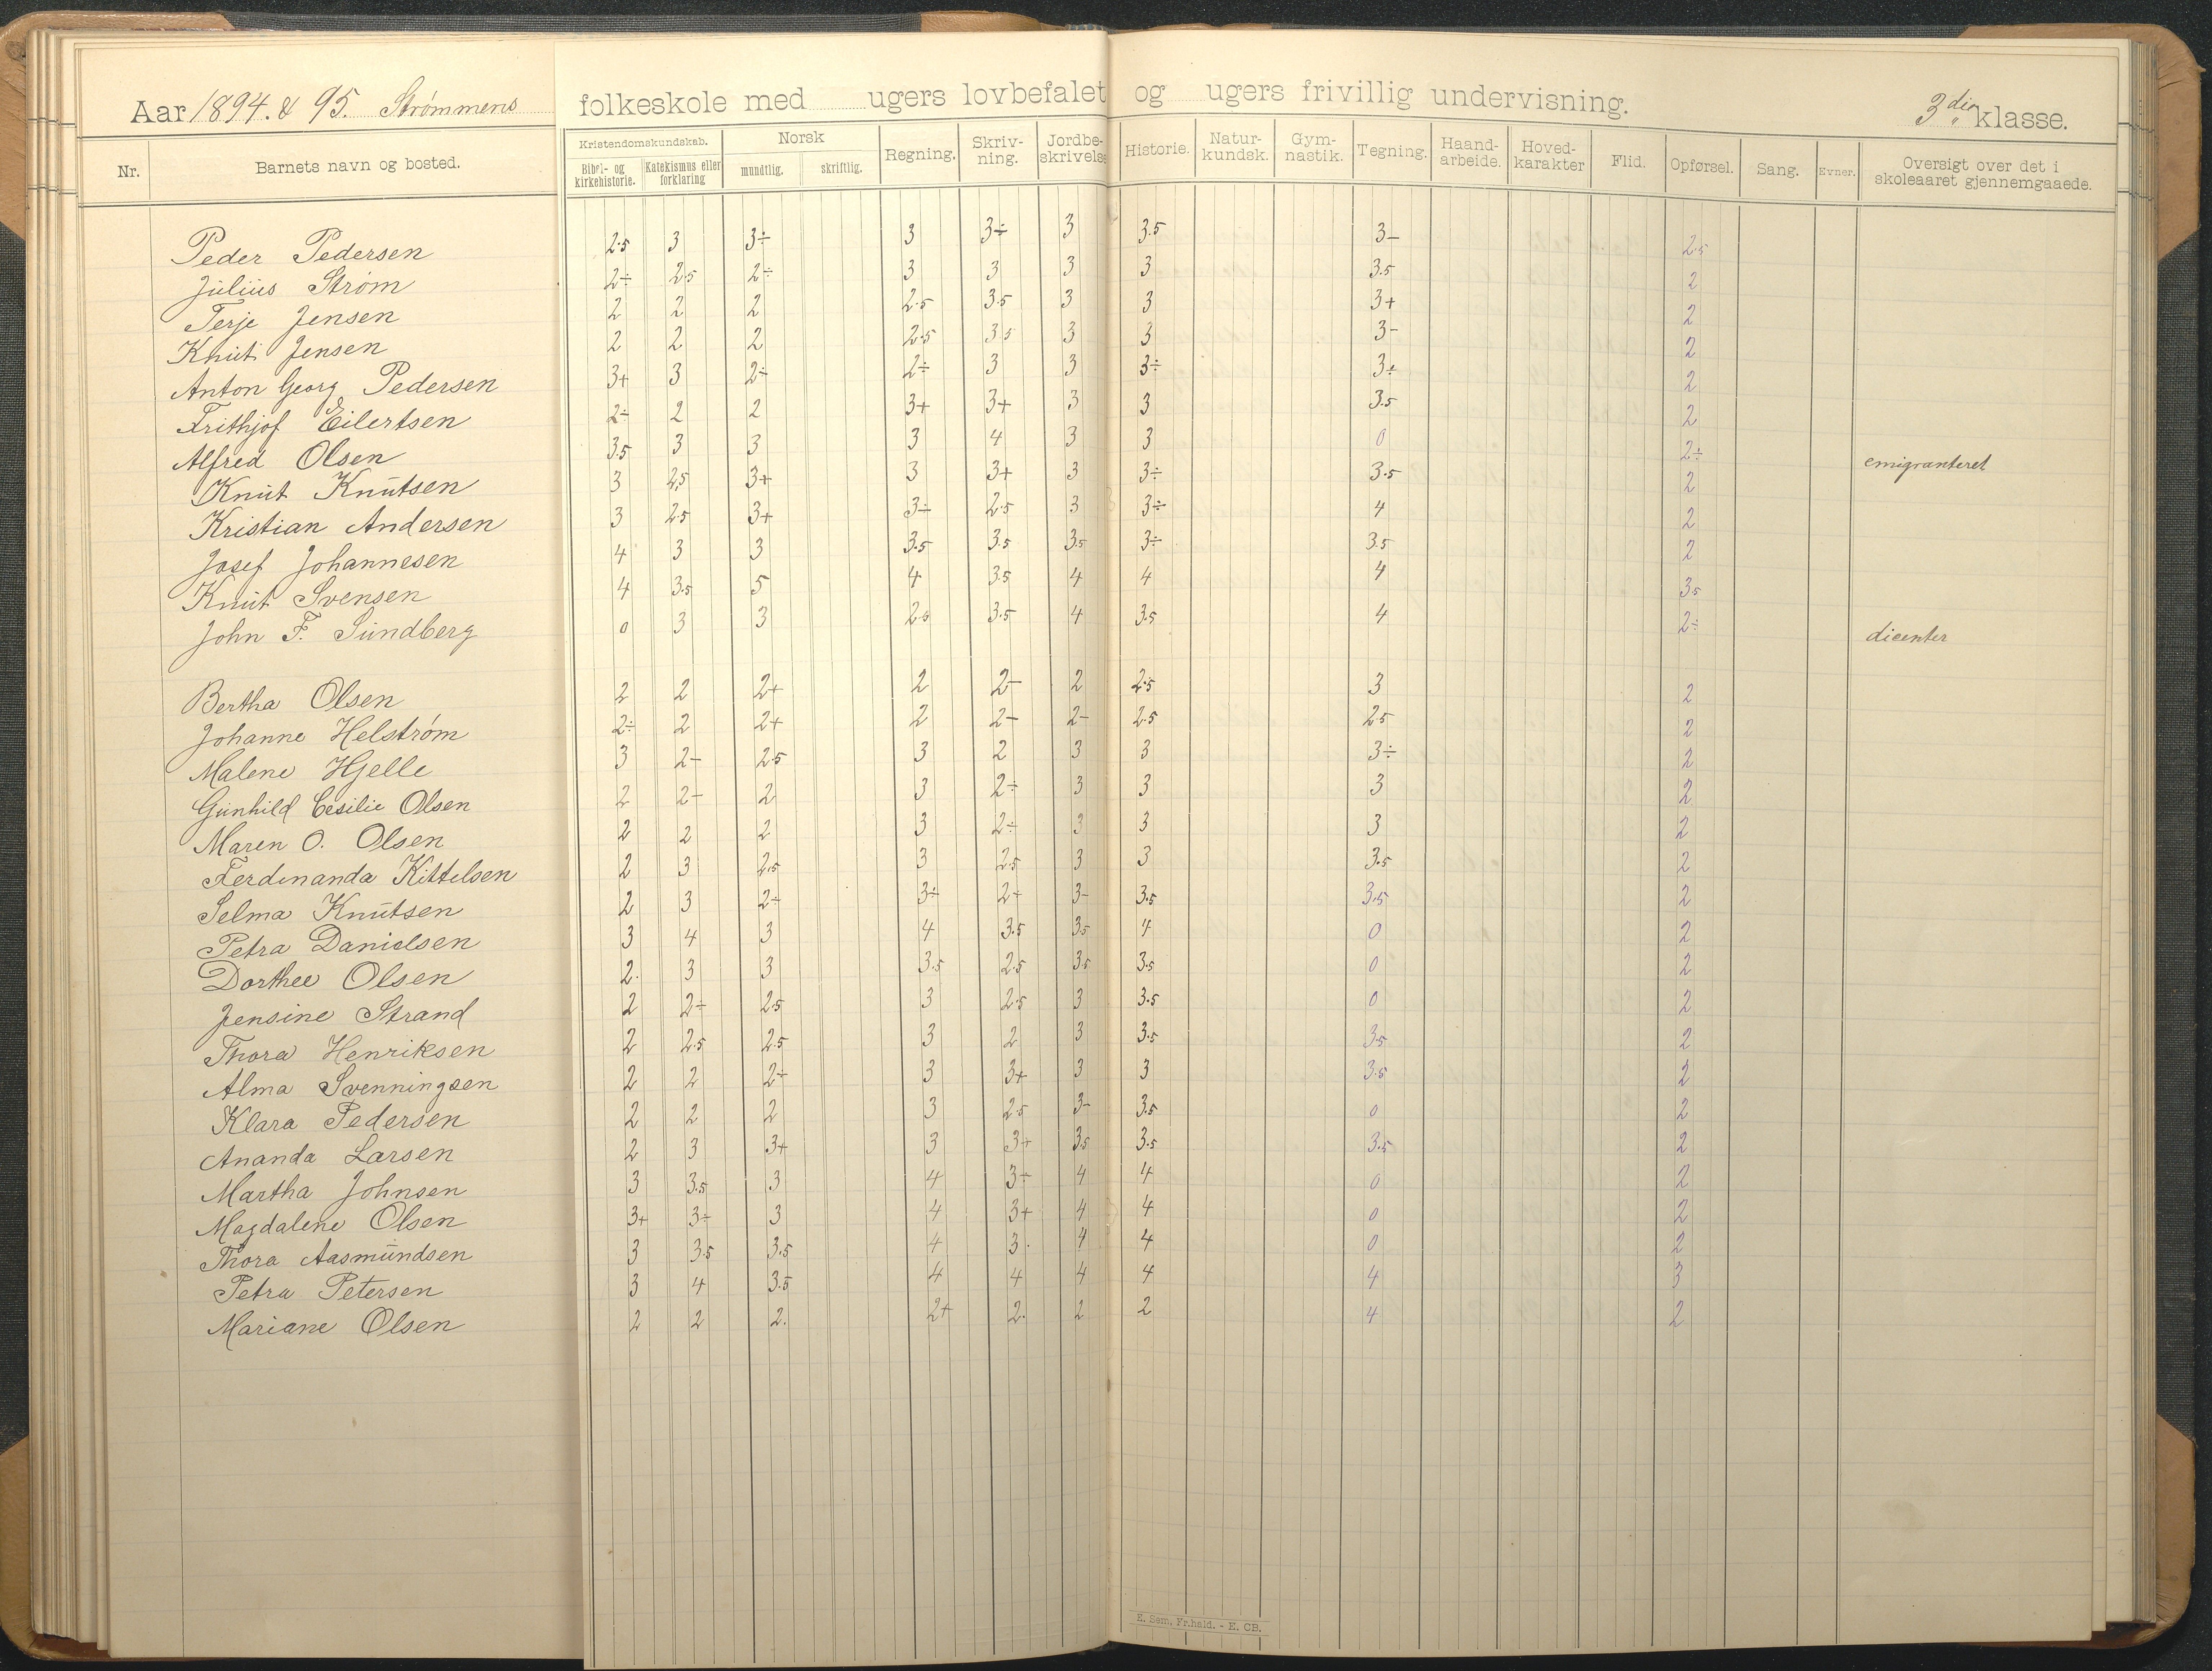 Aar 1894. & 95. Strømmens folkeskole med ugers lovbefalet og ugers frivillig undervisning. 3die klasse.
Nr. Barnets navn og bosted. Kristendomskundskab. Bibel- og kirkehistorie. Katekismus eller forklaring Norsk mundtlig. skriftlig. Regning. Skriv-ning. Jordbe-skrivelse Historie. Natur-kundsk. Gym-nastik. Tegning. Haand-arbeide. Hoved-karakter Flid. Opførsel. Sang. Evner. Oversigt over det i skoleaaret gjennemgaaede.
Peder Pedersen 2.5 3 3÷ 3 3÷ 3 3.5 3- 2.5
Julius Strøm 2÷ 2.5 2÷ 3 3 3 3 3.5 2
Terje Jensen 2 2 2 2.5 3.5 3 3 3+ 2
Knut Jensen 2 2 2 2.5 3.5 3 3 3- 2
Anton Georg Pedersen 3+ 3 2÷ 2÷ 3 3 3÷ 3÷ 2
Frithjof Eilertsen 2÷ 2 2 3+ 3+ 3 3 3.5 2
Alfred Olsen 3.5 3 3 3 4 3 3 0 2÷ emigranteret
Knut Knutsen 3 2.5 3+ 3 3+ 3 3÷ 3.5 2
Kristian Andersen 3 2.5 3+ 3÷ 2.5 3 3÷ 4 2
Josef Johannesen 4 3 3 3.5 3.5 3.5 3÷ 3.5 2
Knut Svensen 4 3.5 5 4 3.5 4 4 4 3.5
John F. Sundberg 0 3 3 2.5 3.5 4 3.5 4 2÷ dicenter
Bertha Olsen 2 2 2+ 2 2- 2 2.5 3 2
Johanne Helstrøm 2÷ 2 2+ 2 2- 2- 2.5 2.5 2
Malene Hjelle 3 2- 2.5 3 2 3 3 3÷ 2
Gunhild Cesilie Olsen 2 2- 2 3 2÷ 3 3 3 2
Maren O. Olsen 2 2 2 3 2÷ 3 3 3 2
Ferdinanda Kittelsen 2 3 2.5 3 2.5 3 3 3.5 2
Selma Knutsen 2 3 2÷ 3÷ 2+ 3- 3.5 3.5 2
Petra Danielsen 3 4 3 4 3.5 3.5 4 0 2
Dorthee Olsen 2. 3 3 3.5 2.5 3.5 3.5 0 2
Jensine Strand 2 2÷ 2.5 3 2.5 3 3.5 0 2
Thora Henriksen 2 2.5 2.5 3 2 3 3.5 3.5 2
Alma Svenningsen 2 2 2÷ 3 3+ 3 3 3.5 2
Klara Pedersen 2 2 2 3 2.5 3- 3.5 0 2
Ananda Larsen 2 3 3+ 3 3+ 3.5 3.5 3.5 2
Martha Johnsen 3 3.5 3 4 3÷ 4 4 0 2
Magdalene Olsen 3+ 3÷ 3 4 3+ 4 4 0 2
Thora Aasmundsen 3 3.5 3.5 4 3. 4 4 0 2
Petra Petersen 3 4 3.5 4 4 4 4 4 3
Mariane Olsen 2 2 2. 2+ 2. 2 2 4 2
E. Sem, Fr.hald. - E. CB.